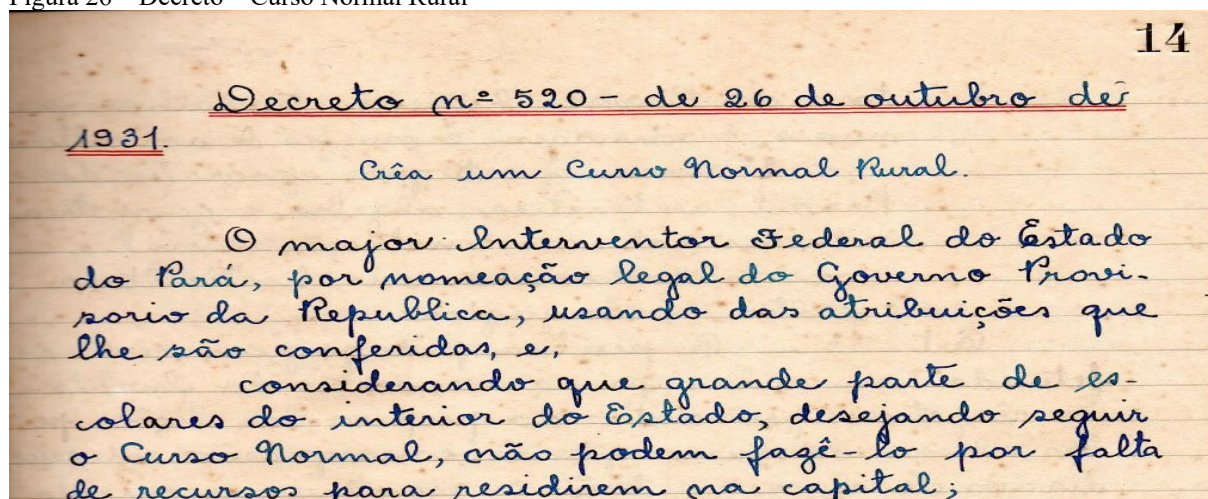 Figura 26 – Decreto – Curso Normal Rural
14
Decreto nº 520 - de 26 de outubro de
1931.
Crêa um Curso Normal Rural.
O major Interventor Federal do Estado
do Pará, por nomeação legal do Governo Provi-
sorio da Republica, usando das atribuições que
lhe são conferidas, e,
considerando que grande parte de es-
colares do interior do Estado, desejando seguir
o Curso Normal, não podem fazê-lo por falta
de recursos para residirem na capital;